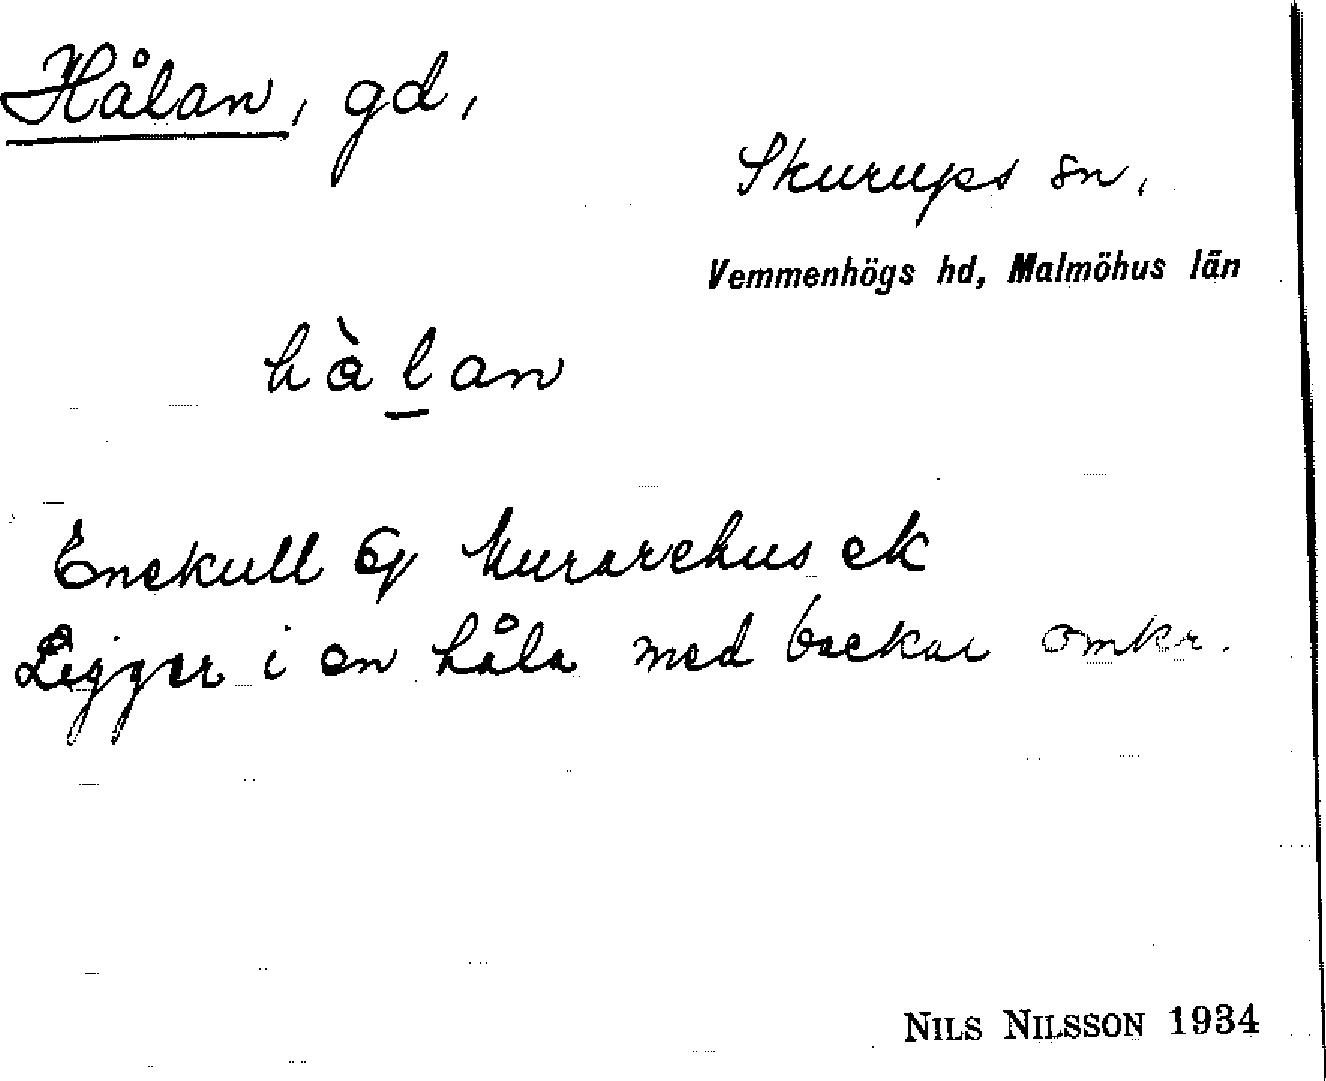 Hålan, gd,
Skurups sn,
Vemmenhögs hd, Malmöhus län
hàlan
Enekull 6/ Murarehus ek
Ligger i en håla med backar omkr.
NILS NILSSON 1934